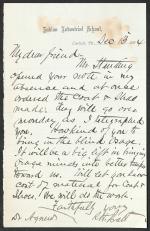 Indian Industrial School,
Carlisle, Pa., Dec 13
My dear friend
Mr Standing
opened your note in my
absence and at once
ordered the Coat & Shoes
made. they will go over
monday as I telegraphed
you. How kind of you to
bring in the blind
It will be a big lift in bringing
minds into better
toward us. Will let you have
cost of materials for Coat &
Shoes. We will do the work.
Faithfully yours
RHPratt
Dr Agnew